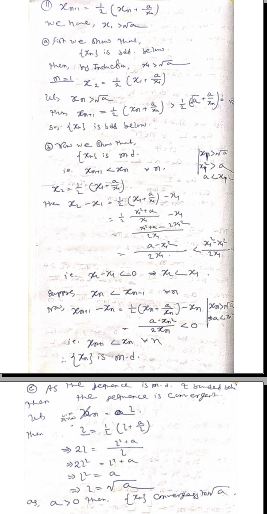 ⑪ xₙ₊₁ = ½ (xₙ + a/xₙ)
we have, x₁ > √a
ⓐ First we show that,
{xₙ} is bdd. below
then, by induction, x₁ > √a
n=1 x₂ = ½ (x₁ + a/x₁)
Let xₙ > √a
then xₙ₊₁ = ½ (xₙ + a/xₙ) > ½ (√a +
So, {xₙ} is bdd below
ⓑ Now we show that,
{xₙ} is m.d.
i.e. xₙ₊₁ < xₙ ∀ n.
x₁ > √a
x₁² > a
a < x₁²
x₂ = ½ (x₁ + a/x₁)
then x₂ - x₁ = ½ (x₁ + a/x₁) - x₁
= ½ (x₁² + a)/x₁ - x₁
= (x₁² + a - 2x₁²)/2x₁
= (a - x₁²)/2x₁ < (x₁² - x₁²)/2x₁
i.e. x₂ - x₁ < 0 ⇒ x₂ < x₁
Suppose xₙ < xₙ₋₁ ∀ n
xₙ₊₁ - xₙ = ½ (xₙ + a/xₙ) - xₙ
xₙ > √a
= (a - xₙ²)/2xₙ < 0
i.e. xₙ₊₁ < xₙ ∀ n
∴ {xₙ} is m.d.
ⓒ As the sequence is m.d. & bounded
then the sequence is convergent
Let xₙ = l.
then l = ½ (l + a/l)
⇒ 2l = (l² + a)/l
⇒ 2l² = l² + a
⇒ l² = a
⇒ l = √a
as, a > 0 then {xₙ} converges to √a.